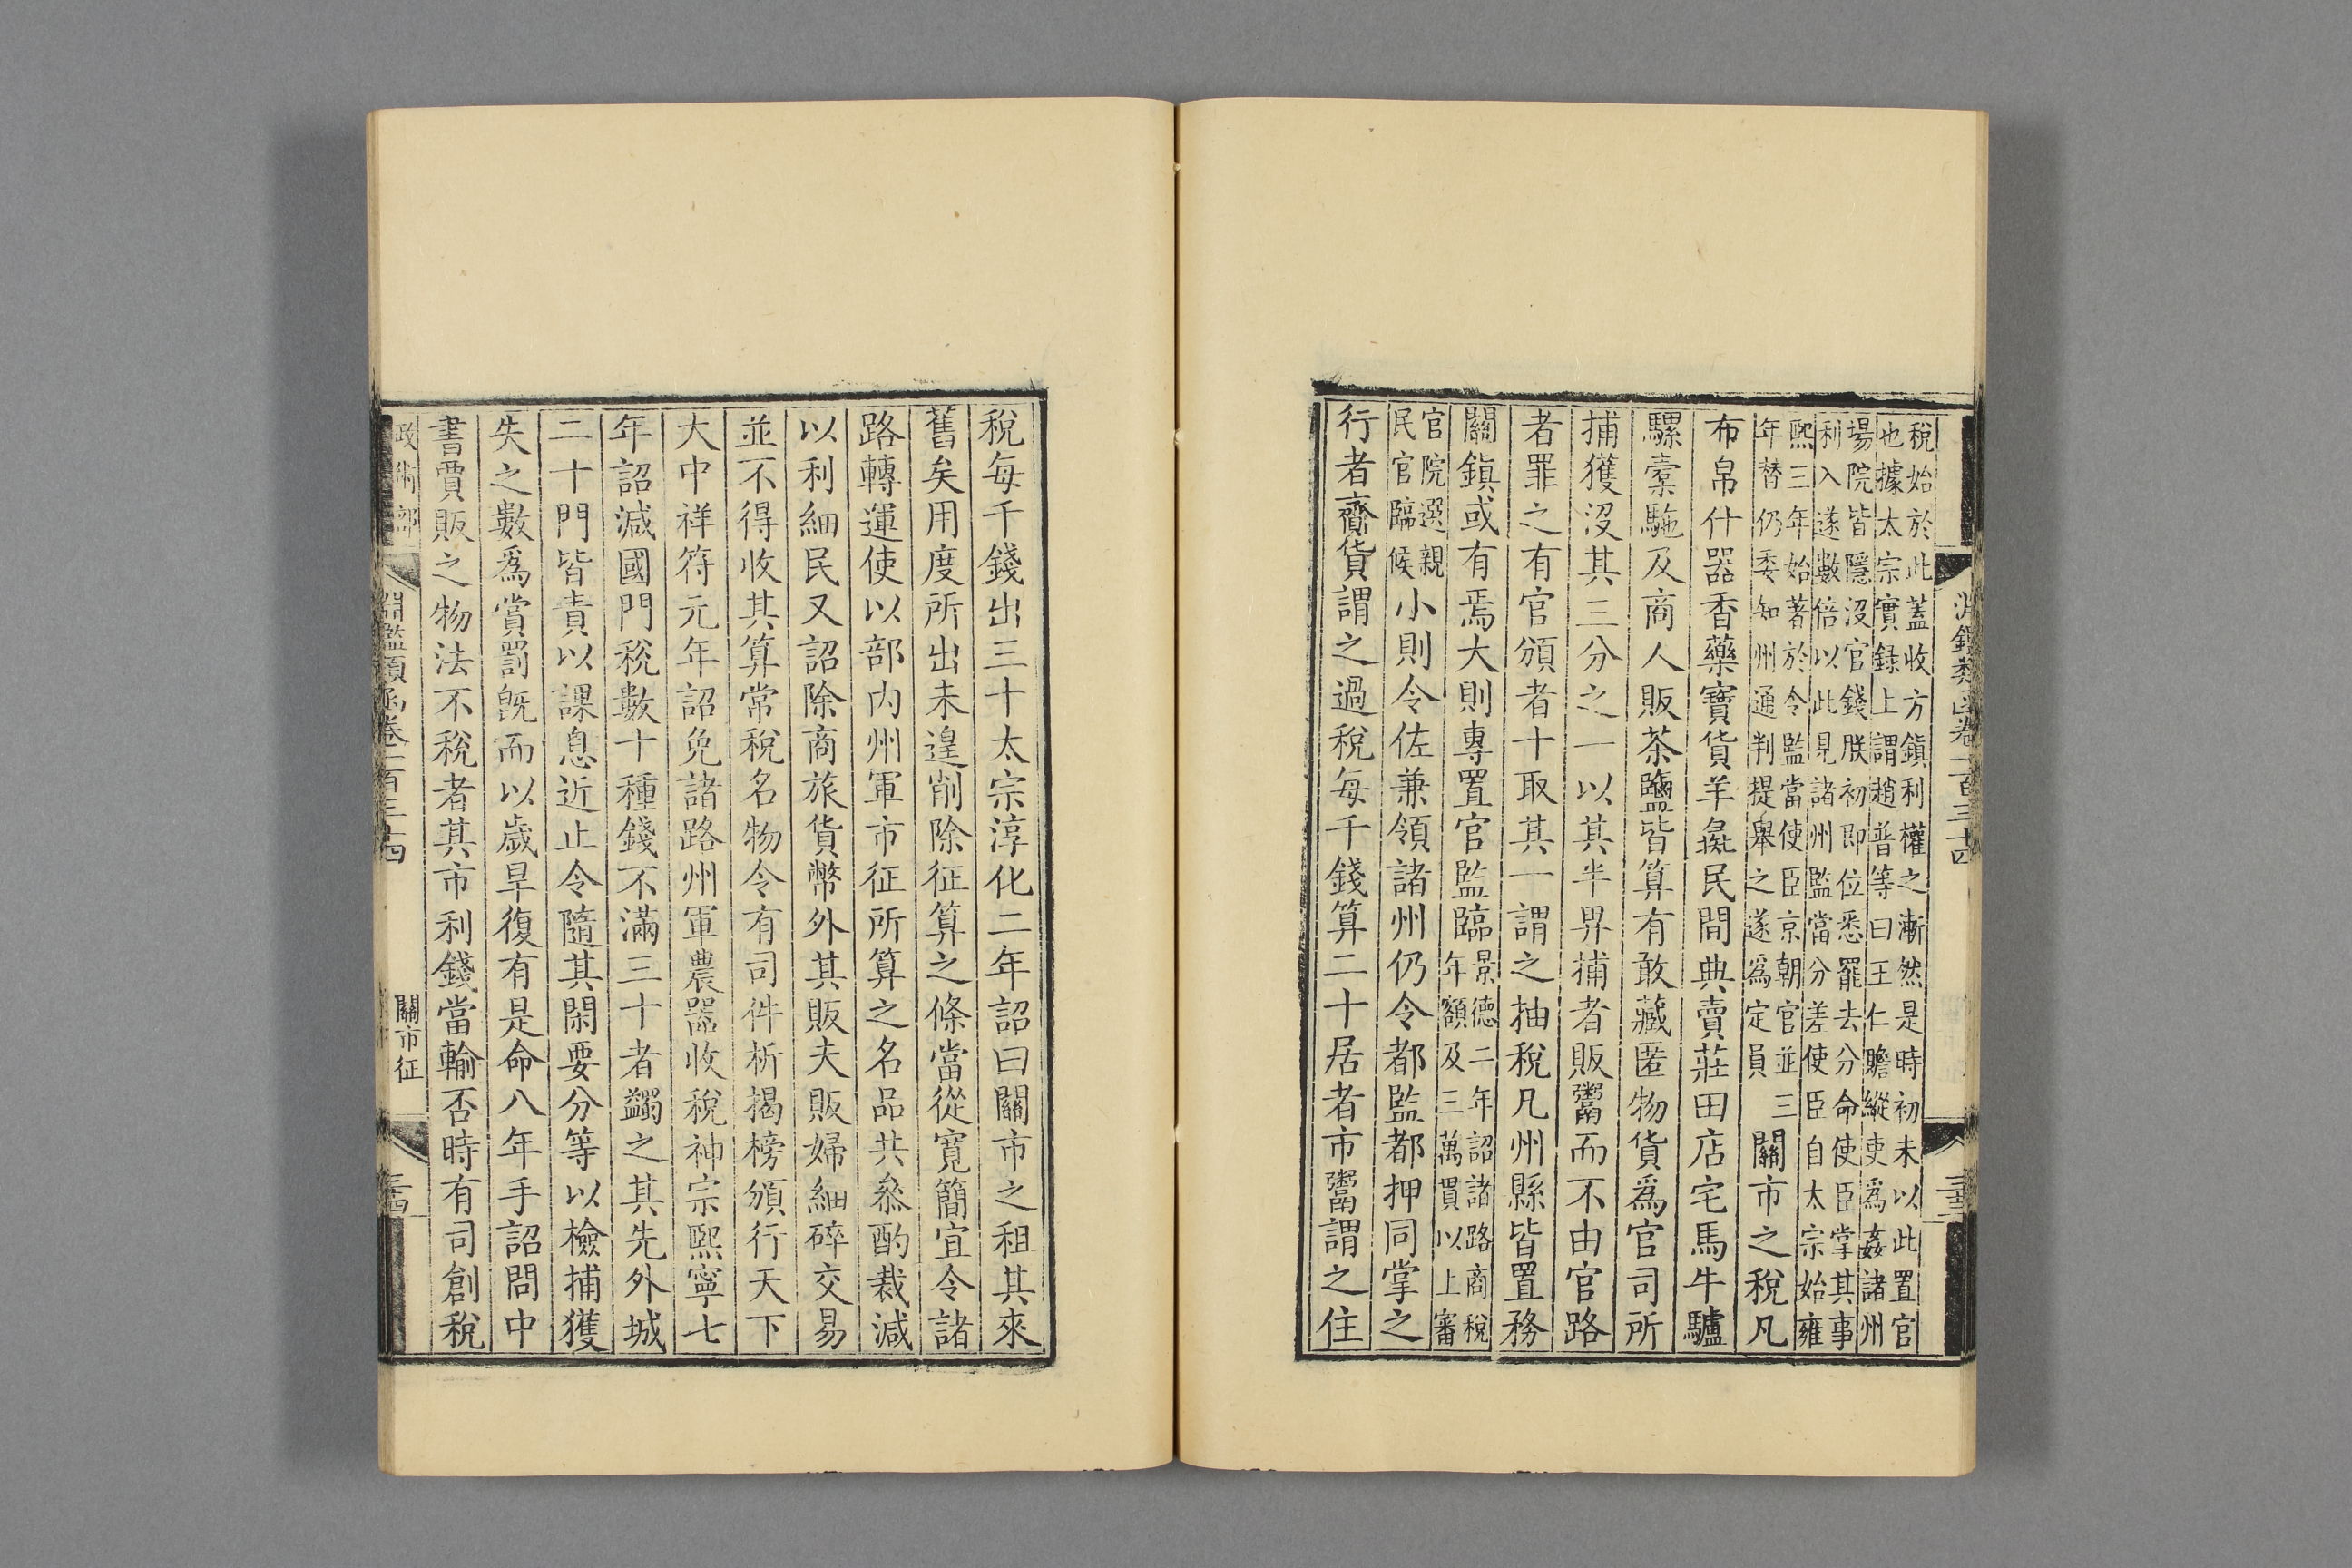 淵鑑類函卷二百三十四
稅始於此蓋收方鎮利權之漸然是時初未以此置官
也據太宗實録上謂趙普等曰王仁贍縱吏為姦諸州
場院皆隱沒官錢朕初即位悉罷去分命使臣掌其事
利入遂數倍以此見諸州監當分差使臣自太宗始雍
熙三年始著於令監當使臣京朝官並三
年替仍委知州通判提舉之遂為定員
關市之稅凡
布帛什器香藥寶貨羊彘民間典賣莊田店宅馬牛驢
騾橐駞及商人販茶鹽皆算有敢藏匿物貨爲官司所
捕獲沒其三分之一以其半畀捕者販鬻而不由官路
者罪之有官頒者十取其一謂之抽稅凡州縣皆置務
關鎮或有焉大則專置官監臨
景德二年詔諸路商稅
年額及三萬貫以上審
官院選親
民官臨候
小則令佐兼領諸州仍令都監都押同掌之
行者齎貨謂之過稅每千錢算二十居者市鬻謂之住
稅每千錢出三十太宗淳化二年詔曰關市之租其來
舊矣用度所出未遑削除征算之條當從寬簡宜令諸
路轉運使以部内州軍市征所算之名品共叅酌裁減
以利細民又詔除商旅貨幣外其販夫販婦細碎交易
並不得收其算常稅名物令有司件析揭榜頒行天下
大中祥符元年詔免諸路州軍農器收稅神宗熙寧七
年詔減國門稅數十種錢不滿三十者蠲之其先外城
二十門皆責以課息近止令隨其閑要分等以檢捕獲
失之數爲賞罰旣而以歲旱復有是命八年手詔問中
書賈販之物法不稅者其市利錢當輸否時有司創稅
政術部
淵鑑類函卷二百三十四
關市征